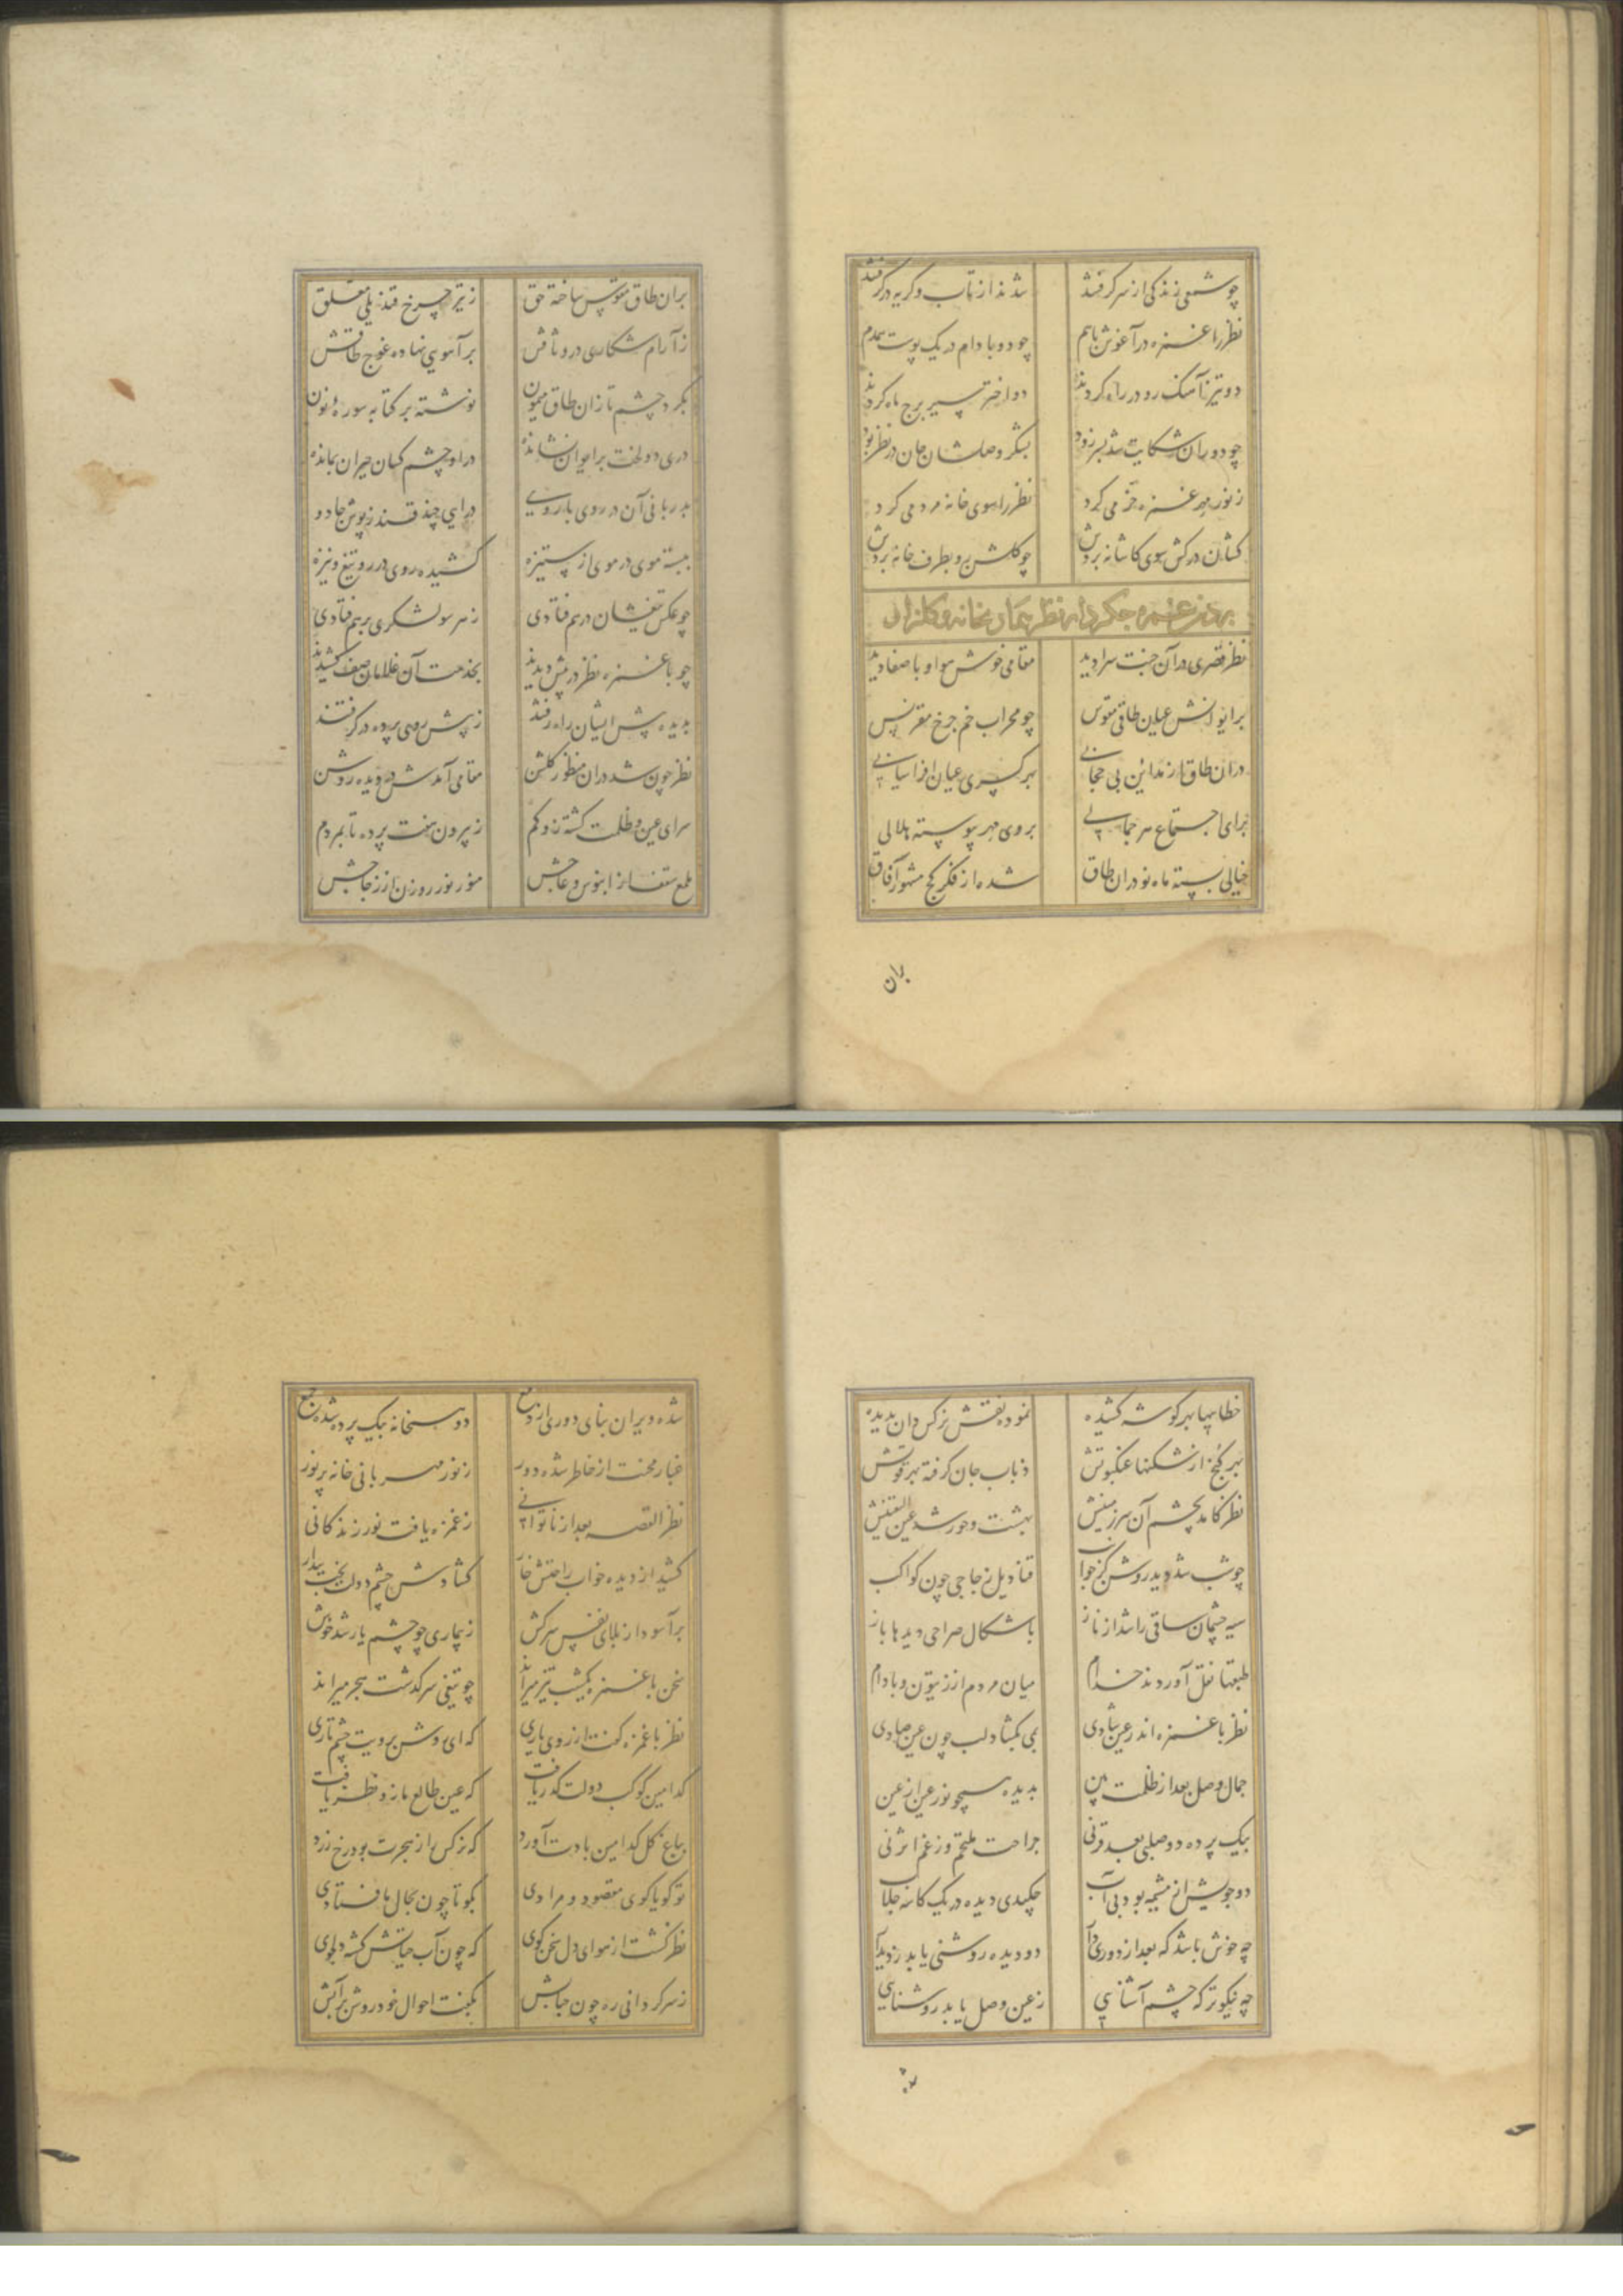 چو شمعی زندگی از سر گرفتند شدند از تاب و گریه در گرفتند
نظر را غمزه در آغوش باهم چو دو بادام در یک پوست همدم
دو تیز آهنگ رو در راه کردند دو اختر سیر برج ماه کردند
چو دوران شکایت شد بسر زود بشکر وصلشان جان در نظر بود
ز نور مهر غمزه می کرد نظر را سوی خانه مردمی کرد
کشان در کش سوی کاشانه بردش چو گلشن رو بطرف خانه بردش
بردن غمزه نظر بخانه
نظر قصری در آن جنت سرا دید مقامی خوش هوا و با صفا دید
بر ایوانش عیان طاقی مقوس چو محراب خم چرخ مقرنس
در آن طاق از مداین بی حجابی بهر کسری عیان افراسیابی
برای اجتماع هر جمالی بروی مهر پیوسته هلالی
خیالی بسته ماه نو در آن طاق شده از فکر کج مشهور آفاق
بران
بران طاق مقوس ساخته حق ز تیر چرخ قندیلی معلق
ز آرام شکاری در وثاقش بر آهویی نهاده طاقش
بگرد چشم تا زان طاق میمون نوشته بر کتابه سوره نون
دری دولخت بر ایوان نشانده در او چشم کسان حیران بمانده
بدربانی آن در روی با روی در ایی چند قندز پوش جادو
ببسته موی در موی از ستیزه کشیده روی در رو تیغ و نیزه
چو عکس تیغشان در هم فتادی ز هر سو لشکری بر هم فتادی
چو با غمزه نظر در پیش دیدند بخدمت آن غلامان صف کشیدند
بدیده پیش ایشان راه رفتند ز پیش روی پرده در گرفتند
نظر چون شد در آن منظور گلشن مقامی آمدش در دیده روشن
سرای عین و ظلمت گشته زو گم ز بیرون هفت پرده تا بمردم
ملمع سقفا از ابنوس و عاجش منور نور روزن از زجاجش
خطاییها بهر گوشه کشیده نموده نقش نرگس دان بدیده
بهر کنج از شکنها عنکبوتش ذباب جان گرفته بهر قوتش
نظر کامد بچشم آن سرزمینش بهشت و حور شد عین الیقینش
چو شب شد دید روشن قنادیل زجاجی چون کواکب
سیه چشمان ساقی را شد از ناز باشکال صراحی دیدها باز
طبقها نقل آوردند خدام میان مردم از زیتون و بادام
نظر با غمزه اندر عین شادی می بگشاد لب چون عین صادی
جمال وصل بعد از ظلمت بین بدیده همچو نور عین از عین
بیک پرده دو وصلی بعد قرنی جراحت ملتحم وز غم اثر نی
دو جویش از مشیمه بود بی آب چکیدی دیده در یک کاسه
چه خوش باشد که بعد از دوری دو دیده روشنی یابد ز دیدار
چه نیکوتر که چشم آشنایی ز عین وصل یابد روشنایی
شده
شده ویران بنای دوری از دمع دو همخانه بیک پرده شده جمع
غبار محنت از خاطر شده دور ز نور مهربانی خانه پر نور
نظر القصه بعد از ناتوانی ز غمزه یافت نور زندگانی
کشید از دیده خواب راحتش خار گشادش چشم دولت بخت بیدار
برآسود از بلای نفس سرکش ز بیماری چو چشم یار شد خوش
سخن با غمزه یکشب تیز میراند چو تیغی سرگذشت هجر میراند
نظر با غمزه گفت از روی یاری که ای روشن برویت چشم تاری
کدامین کوکب دولت که دریافت که عین طالع ما زو ظفر یافت
بباغ گل کدامین بادت آورد که نرگس را ز هجرت بود رخ زرد
تو گویا گوی مقصود و مرادی بگو تا چون بحال ما فتادی
نظر گشت از هوای دل سخن گوی که چون آب حیاتش گشته دلجوی
ز سر گردانی ره چون حبابش بگفت احوال خود روشن بر آبش